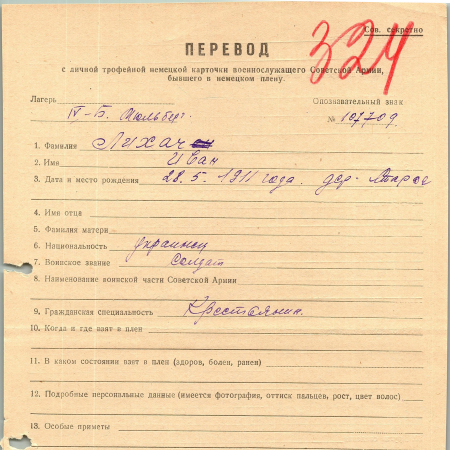 Сов. секретно
324
ПЕРЕВОД
с личной трофейной немецкой карточки военнослужащего Советской Армии,
бывшего в немецком плену.
Лагерь IV-Б. Мюльберг. Опознавательный знак
№ 107709
1. Фамилия Лихач
2. Имя Иван
3. Дата и место рождения 28. 5. 1911 года. дер.
4. Имя отца
5. Фамилия матери
6. Национальность украинец
7. Воинское звание солдат
8. Наименование воинской части Советской Армии
9. Гражданская специальность Крестьянин.
10. Когда и где взят в плен
11. В каком состоянии взят в плен (здоров, болен, ранен)
12. Подробные персональные данные (имеется фотография, оттиск пальцев, рост, цвет волос)
13. Особые приметы